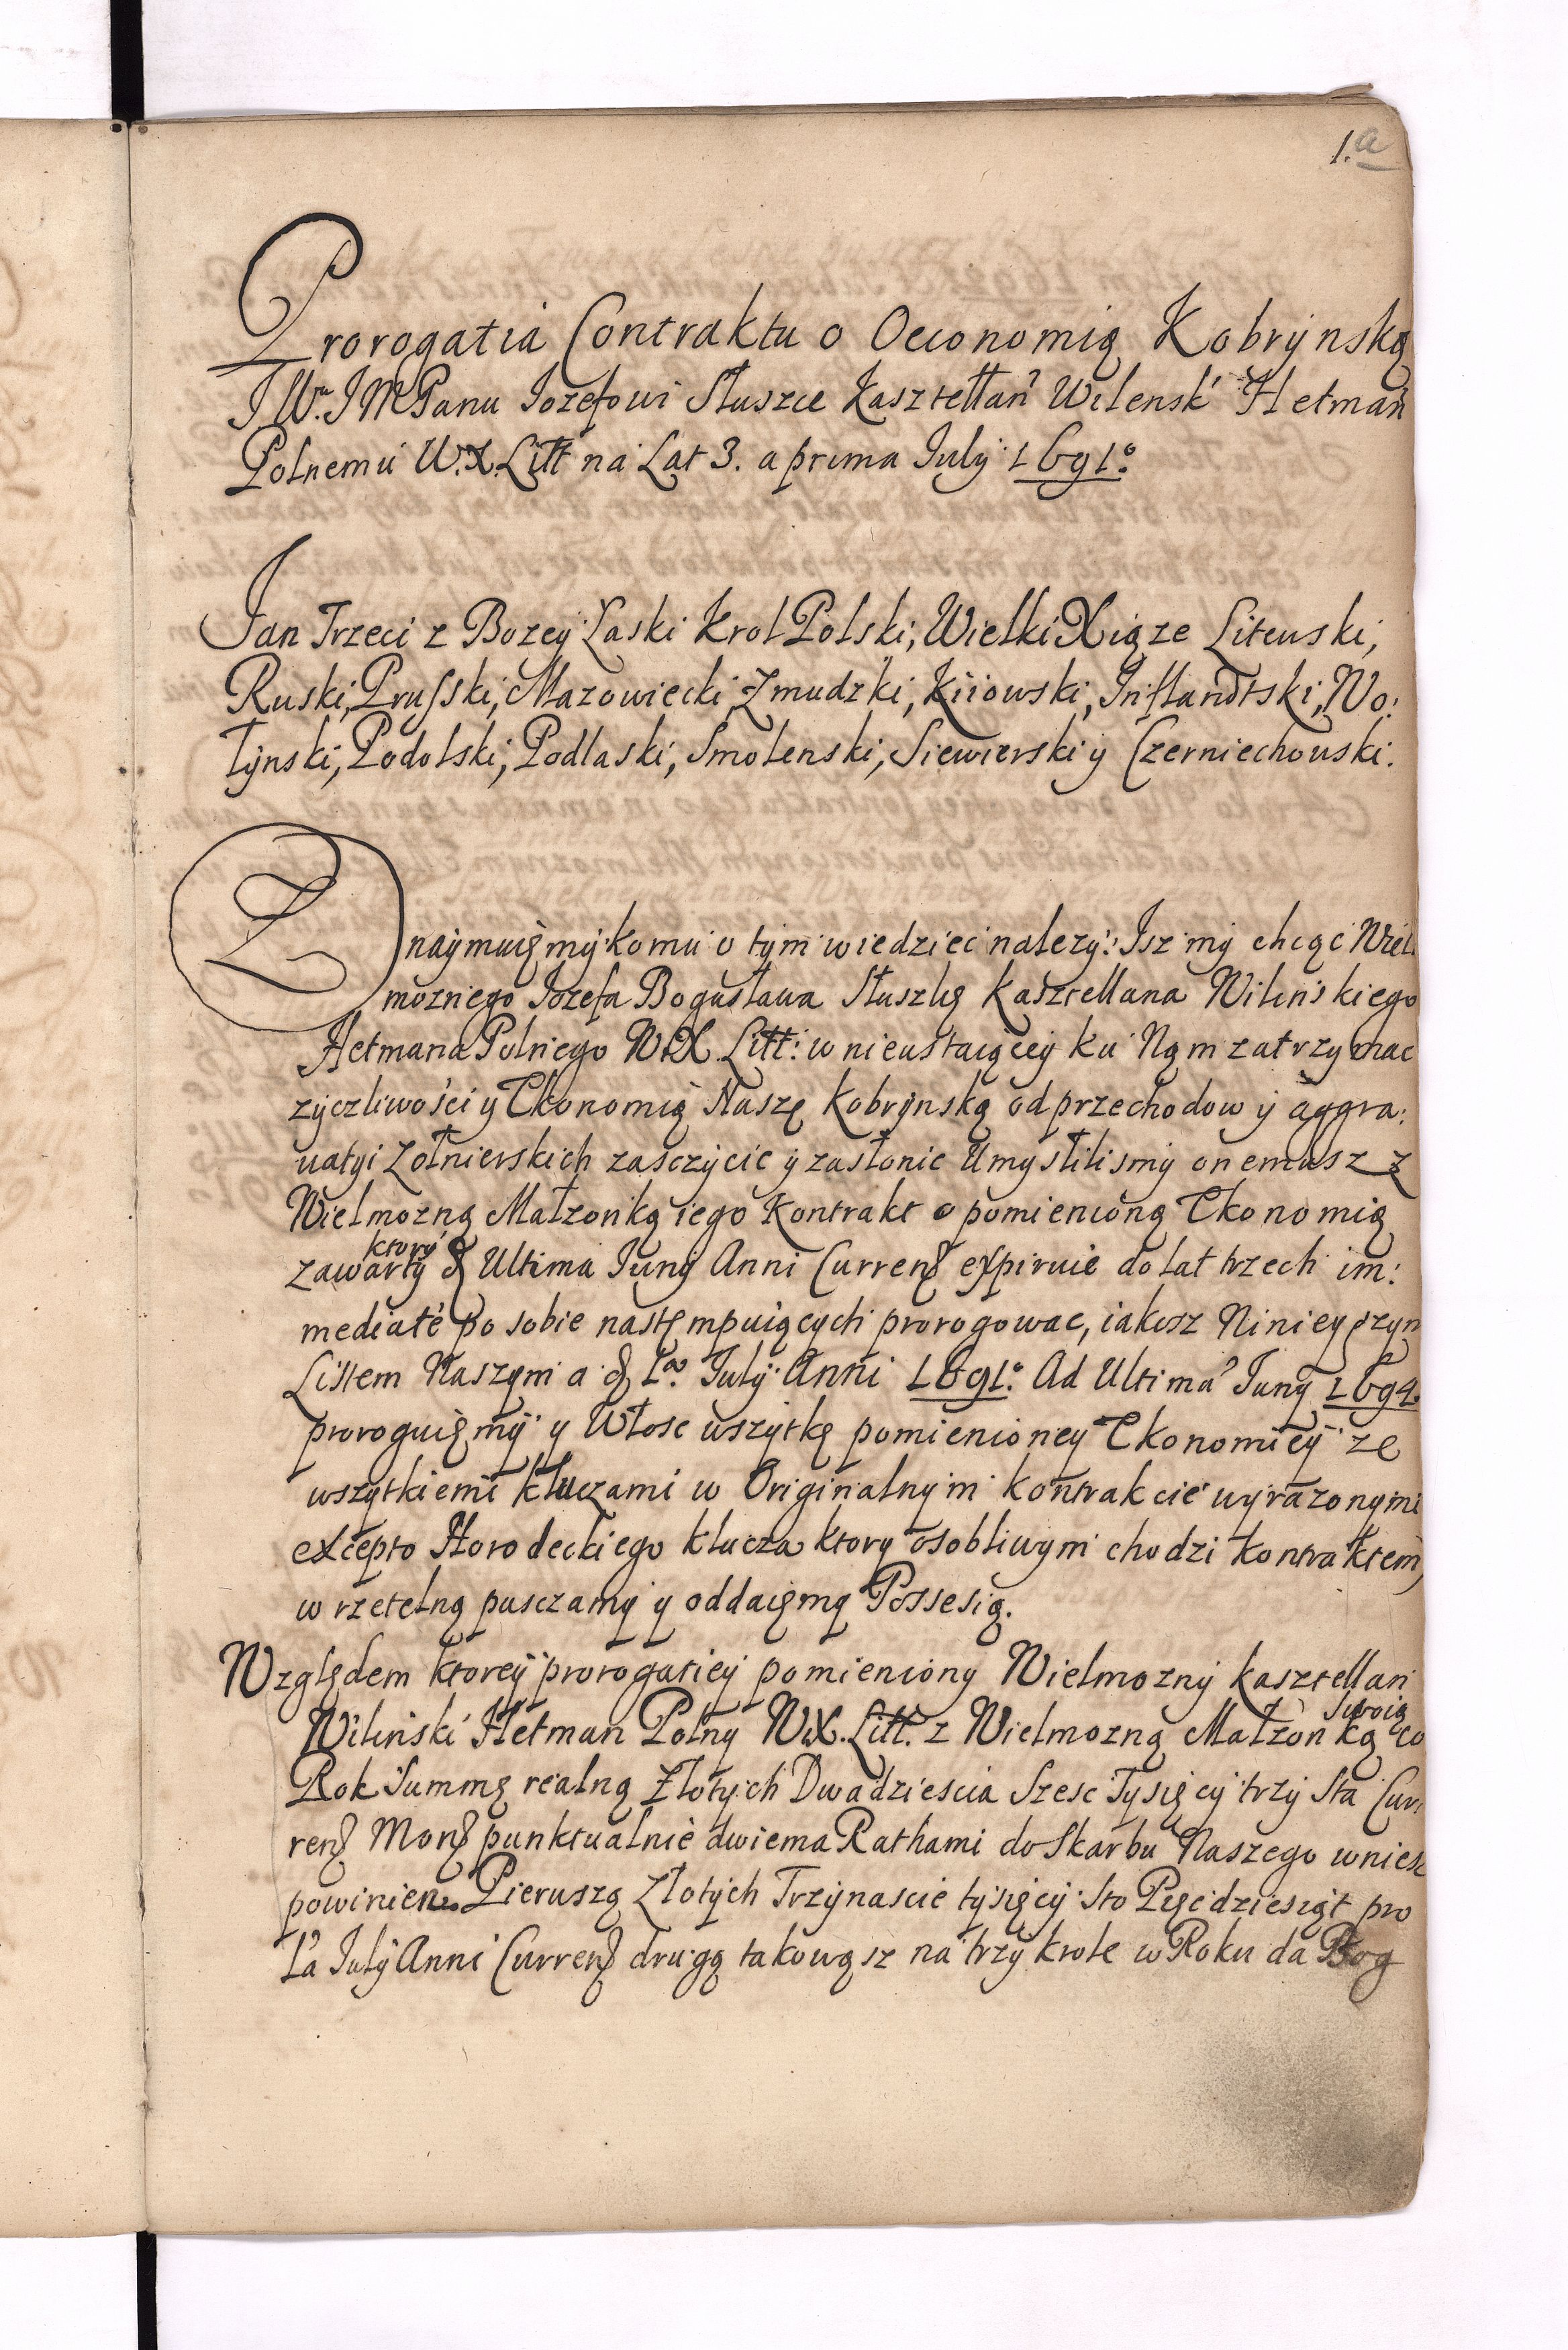 1.a
Prorogatia Contraktu o Oeconomią Kobrynską
J W. J M Panu Jozefowi Słuszce Kasztellan Wilensk Hetman
Polnemu W. X. Litt na Lat 3. a prima July 1691º
Jan Trzeci z Bozey Łaski Krol Polski, Wielki Xiąze Litewski,
Ruski, Prusski, Mazowiecki, Zmudzki, Kiiowski, Inflandtski, Wo:
łynski, Podolski, Podlaski, Smolenski, Siewierski y Czerniechowski.
Znaymuięmy komu o tym wiedziec nalezy: Isz my chcąc Wiel
moznego Jozefa Bogusława Słuszkę Kasztellana Wilenskiego
Hetmana Polnego W. X. Litt: w nieustaiącey ku Nąm zatrzymac
zyczliwości y Ekonomią Naszę Kobrynską od przechodow y aggra:
vatyi Zołnierskich zasczycic y zasłonic Umyslilismy onemusz z
Wielmozną Małzonką iego Kontrakt o pomienioną Ekonomią
zawarty ktory Ultima Juny Anni Curren expiruie do lat trzech im:
mediate po sobie nastempuiących prorogowac, iakosz Ninieyszym
Listem Naszym a 1a July Anni 1691º Ad Ultima Juny 1694.
proroguięmy y Włosc wszytkę pomienioney Ekonomiey ze
wszytkiemi kluczami w Originalnym kontrakcie wyrazonymi
excepto Horodeckiego klucza ktory osobliwym chodzi kontraktem,
w rzetelną pusczamy y oddaięmy Possesią.
Względem ktorey prorogatiey pomieniony Wielmozny kasztellan
Wilenski Hetman Polny W. X. Litt. z Wielmozną Małzonką Swoią co
Rok Summę realną Złotych Dwadziescia Szesc Tysięcy trzy Sta Cur
ren Mon punktualnie dwiema Rathami do Skarbu Naszego wniesc
powinien. Pierwszą Złotych Trzynascie tysięcy Sto Pięcdziesiąt pro
1a July Anni Curren drugą takowąsz na trzy krole w Roku da Bog